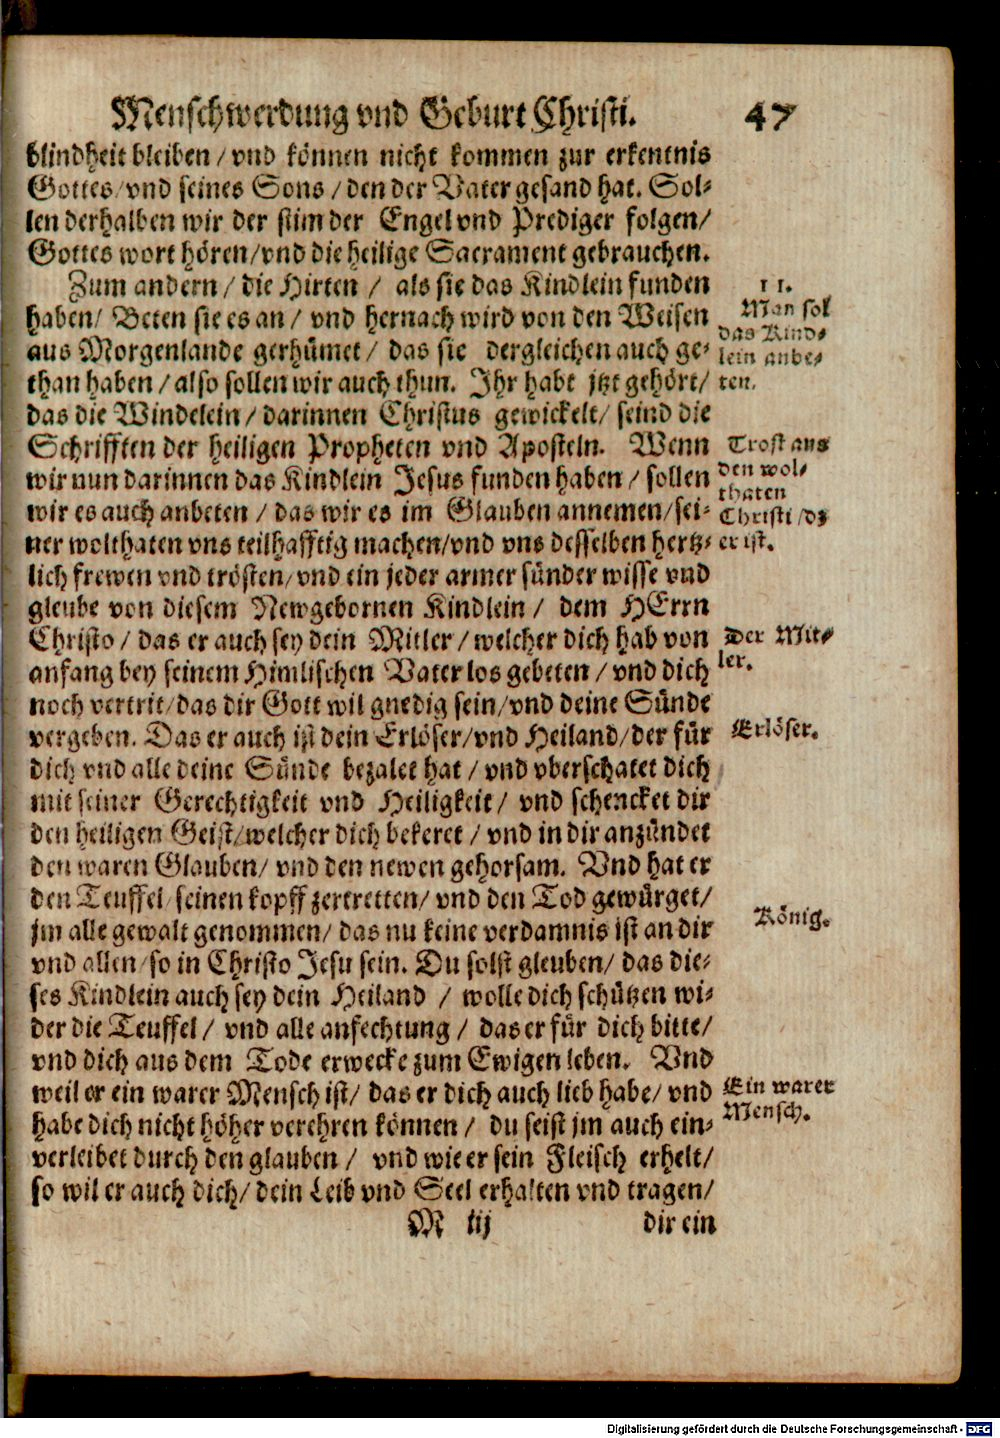 Menschwerdung vnd Geburt Christi. 47
blindheit bleiben / vnd können nicht kommen zur erkentnis
Gottes / vnd seines Sons / den der Vater gesand hat. Sol-
len derhalben wir der stim der Engel vnd Prediger folgen /
Gottes wort hören / vnd die heilige Sacrament gebrauchen.
Zum andern / die Hirten / als sie das Kindlein funden
haben / Beten sie es an / vnd hernach wird von den Weisen
aus Morgenlande gerhümet / das sie dergleichen auch ge-
than haben / also sollen wir auch thun. Ihr habt jtzt gehört /
das die Windelein / darinnen Christus gewickelt / seind die
Schrifften der heiligen Propheten vnd Aposteln. Wenn
wir nun darinnen das Kindlein Jesus funden haben / sollen
wir es auch anbeten / das wir es im Glauben annemen / sei-
ner wolthaten vns teilhafftig machen / vnd vns desselben hertz-
lich frewen vnd trösten / vnd ein jeder armer sünder wisse vnd
gleube von diesem Newgebornen Kindlein / dem HErrn
Christo / das er auch sey dein Mitler / welcher dich hab von
anfang bey seinem Himlischen Vater los gebeten / vnd dich
noch vertrit / das dir Gott wil gnedig sein / vnd deine Sünde
vergeben. Das er auch ist dein Erlöser / vnd Heiland / der für
dich vnd alle deine Sünde bezalet hat / vnd vberschatet dich
mit seiner Gerechtigkeit vnd Heiligkeit / vnd schencket dir
den heiligen Geist / welcher dich bekeret / vnd in dir anzündet
den waren Glauben / vnd den newen gehorsam. Vnd hat er
den Teuffel seinen kopff zertretten / vnd den Tod gewürget /
jm alle gewalt genommen / das nu keine verdamnis ist an dir
vnd allen / so in Christo Jesu sein. Du solst gleuben / das die-
ses Kindlein auch sey dein Heiland / wolle dich schützen wi-
der die Teuffel / vnd alle anfechtung / das er für dich bitte /
vnd dich aus dem Tode erwecke zum Ewigen leben. Vnd
weil er ein warer Mensch ist / das er dich auch lieb habe / vnd
habe dich nicht höher verehren können / du seist jm auch ein-
verleibet durch den glauben / vnd wie er sein Fleisch erhelt /
so wil er auch dich / dein Leib vnd Seel erhalten vnd tragen /
M iij dir ein
11.
Man sol
das Kind-
lein anbe-
ten.
Trost aus
den wol-
thaten
Christi / dz
er ist.
Der Mit-
ler.
Erlöser.
König.
Ein warer
Mensch.
Digitalisierung gefördert durch die Deutsche Forschungsgemeinschaft - DFG